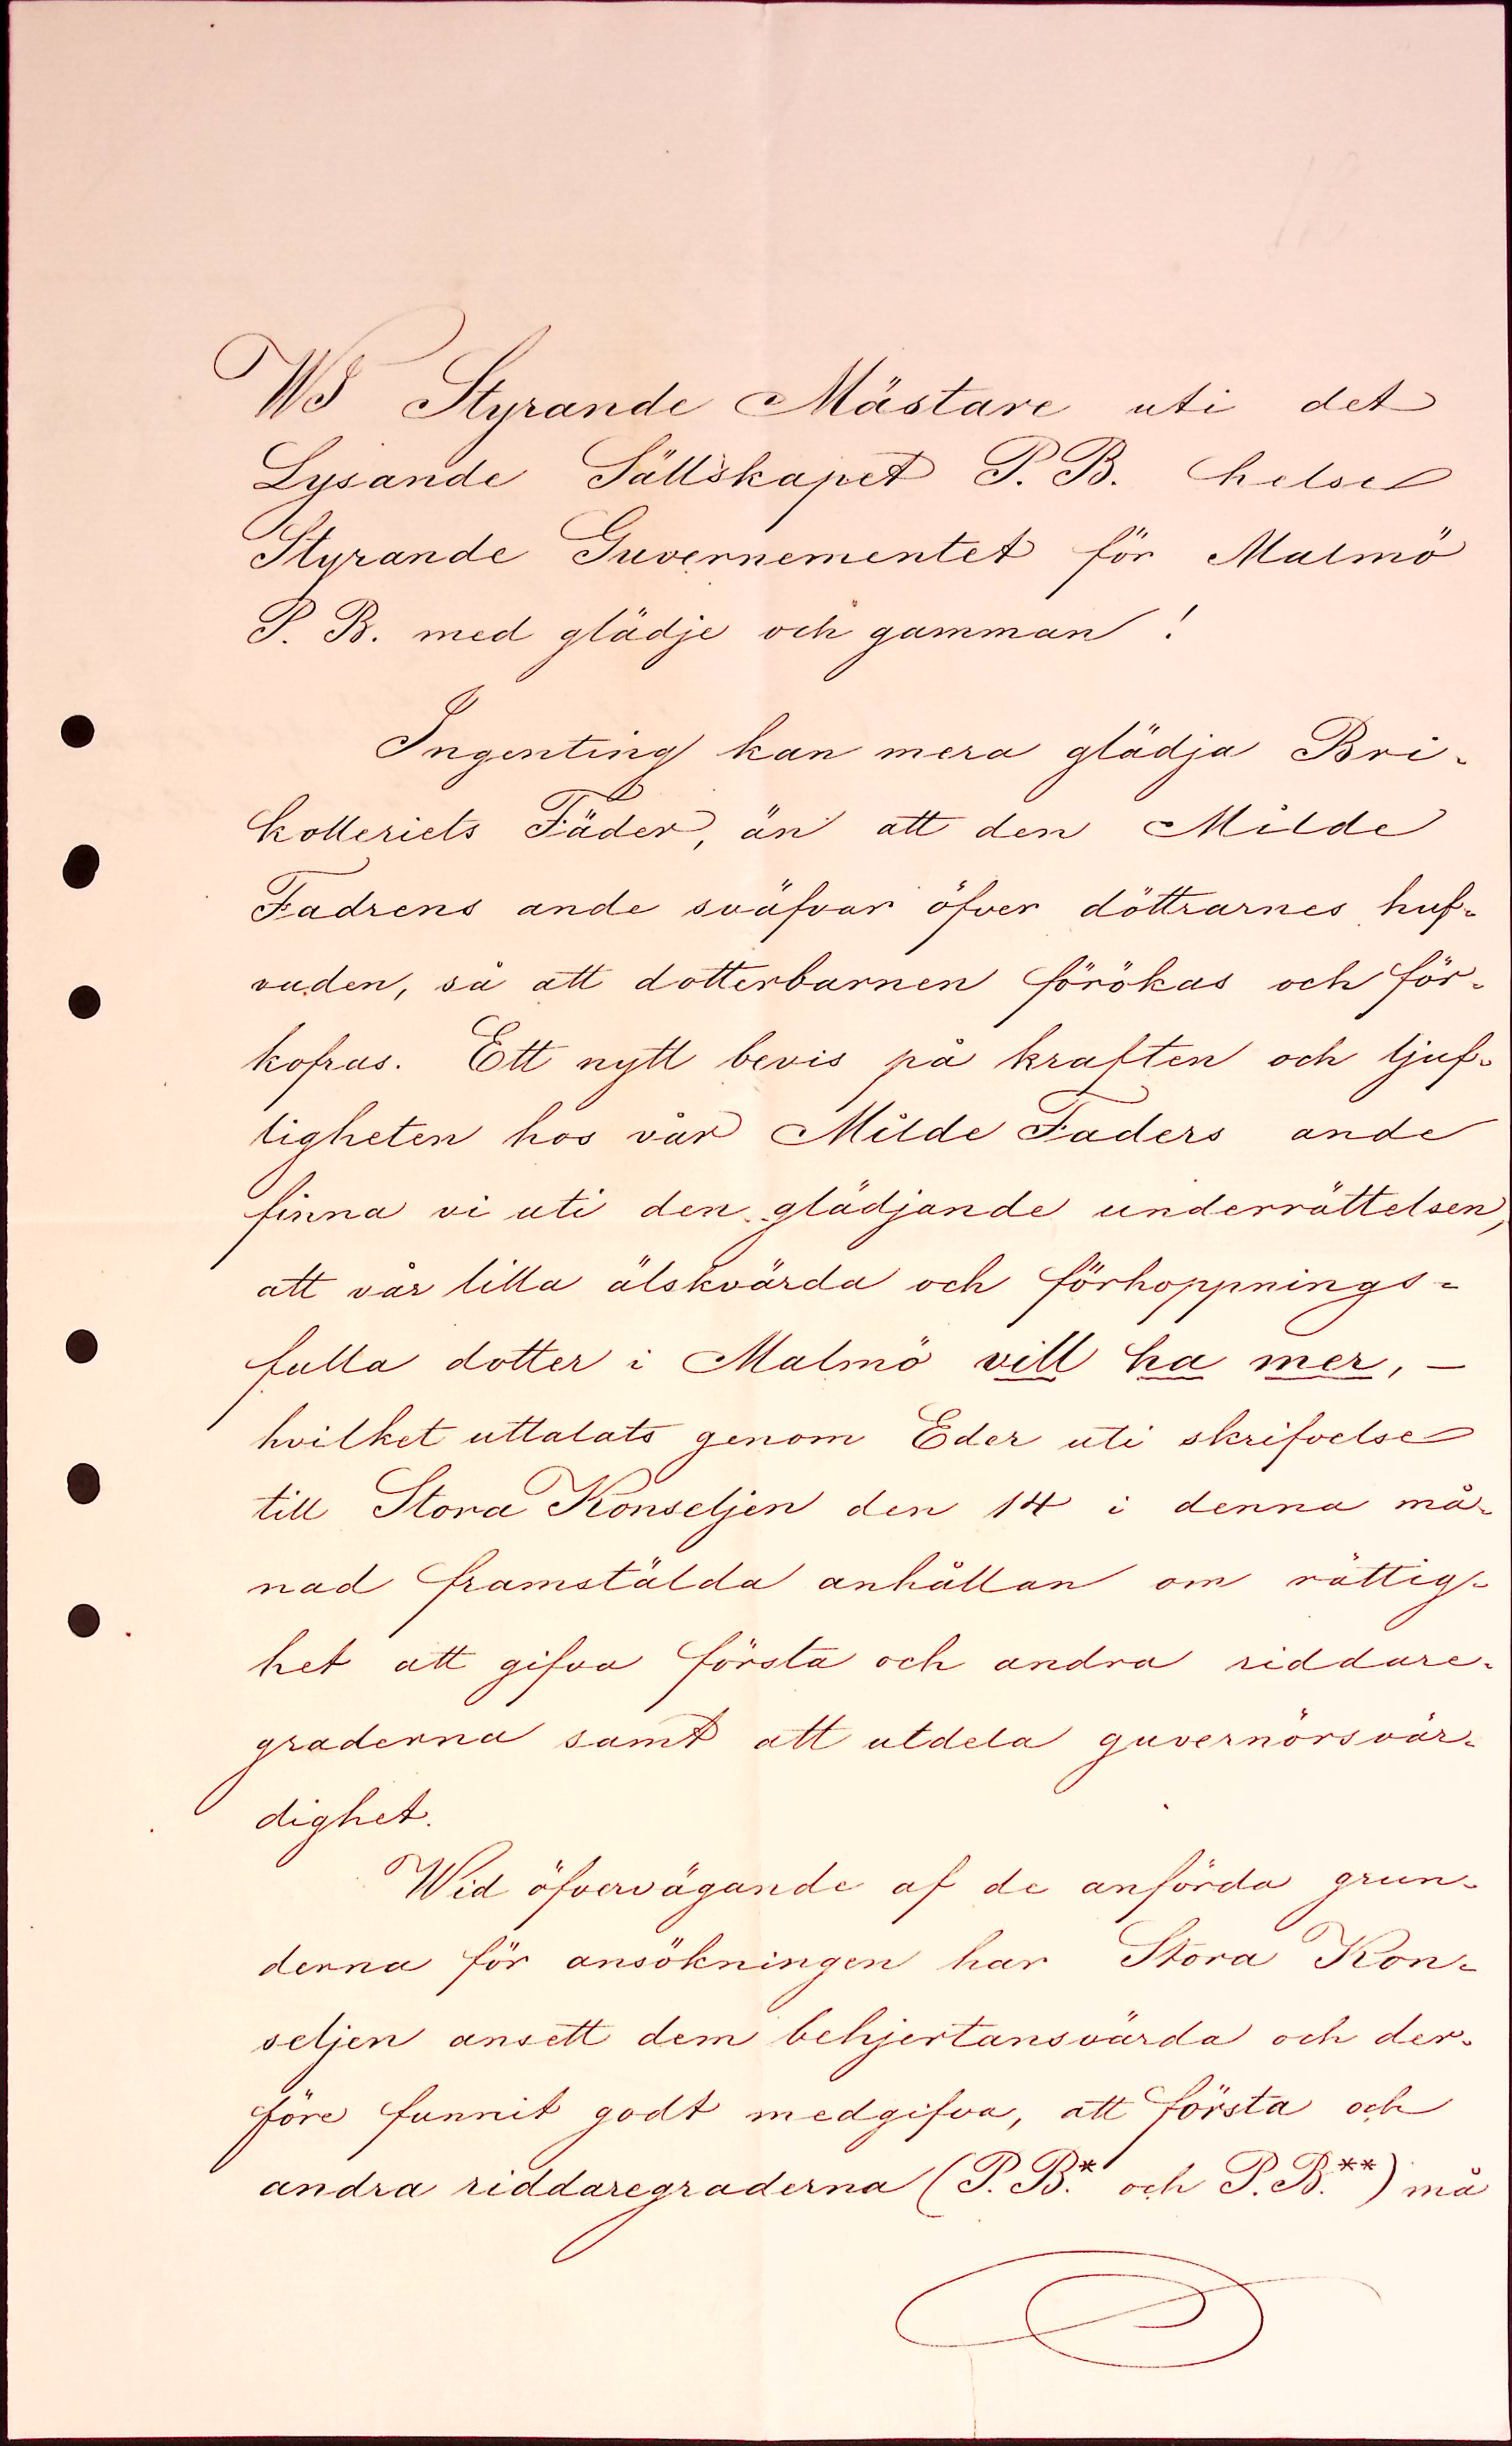 WI Styrande Mästare uti det
Lysande Sällskapet P. B. helse
Styrande Guvernementet för Malmö
P. B. med glädje och gamman!
Ingenting kan mera glädja Bri-
kolleriets Fäder, än att den Milde
Fadrens ande sväfvar öfver döttrarnes huf-
vuden, så att dotterbarnen förökas och för-
kofras. Ett nytt bevis på kraften och ljuf-
ligheten hos vår Milde Faders ande
finna vi uti den glädjande underrättelsen,
att vår lilla älskvärda och förhoppnings-
fulla dotter i Malmö vill ha mer, —
hvilket uttalats genom Eder uti skrifvelse
till Stora Konseljen den 14 i denna må-
nad framstälda anhållan om rättig-
het att gifva första och andra riddare-
graderna samt att utdela guvernörsvär-
dighet.
Wid öfvervägande af de anförda grun-
derna för ansökningen har Stora Kon-
seljen ansett dem behjertansvärda och der-
före funnit godt medgifva, att första och
andra riddaregraderna (P. B.* och P. B.**) må